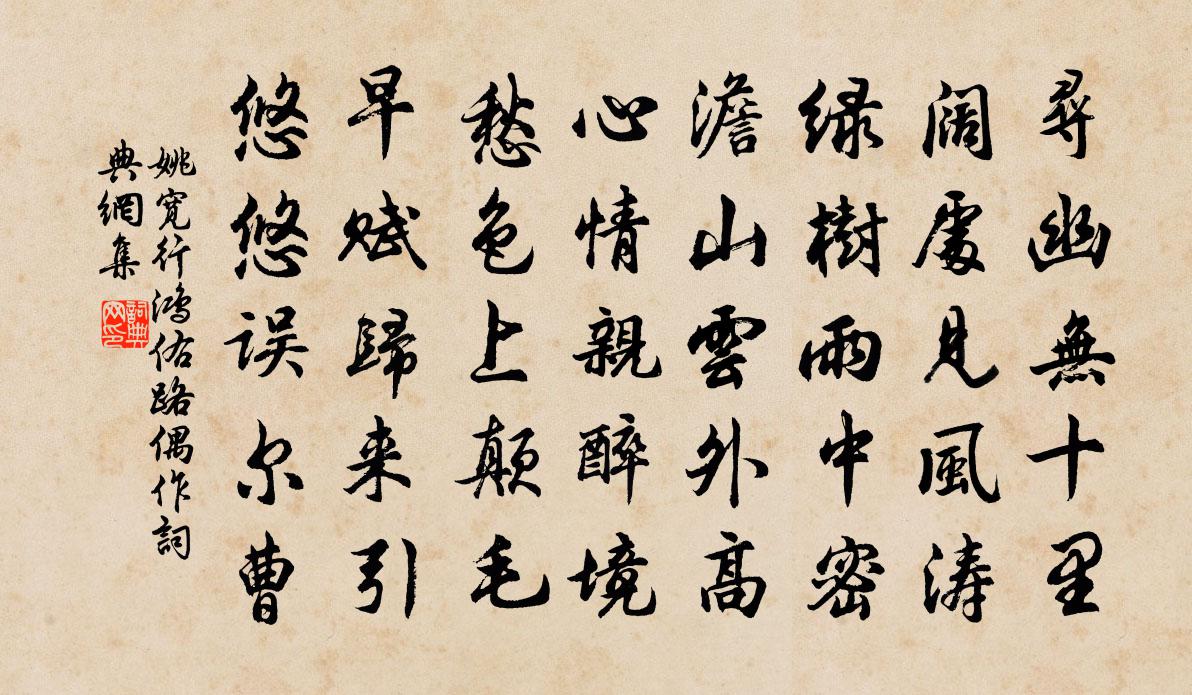 尋幽無十里
闊處見風濤
緑樹雨中密
澹山雲外高
心情親醉境
愁色上颠毛
早赋歸来引
悠悠误尔曹
姚寬行鴻佑路偶作詞
典網集
詞典
网印